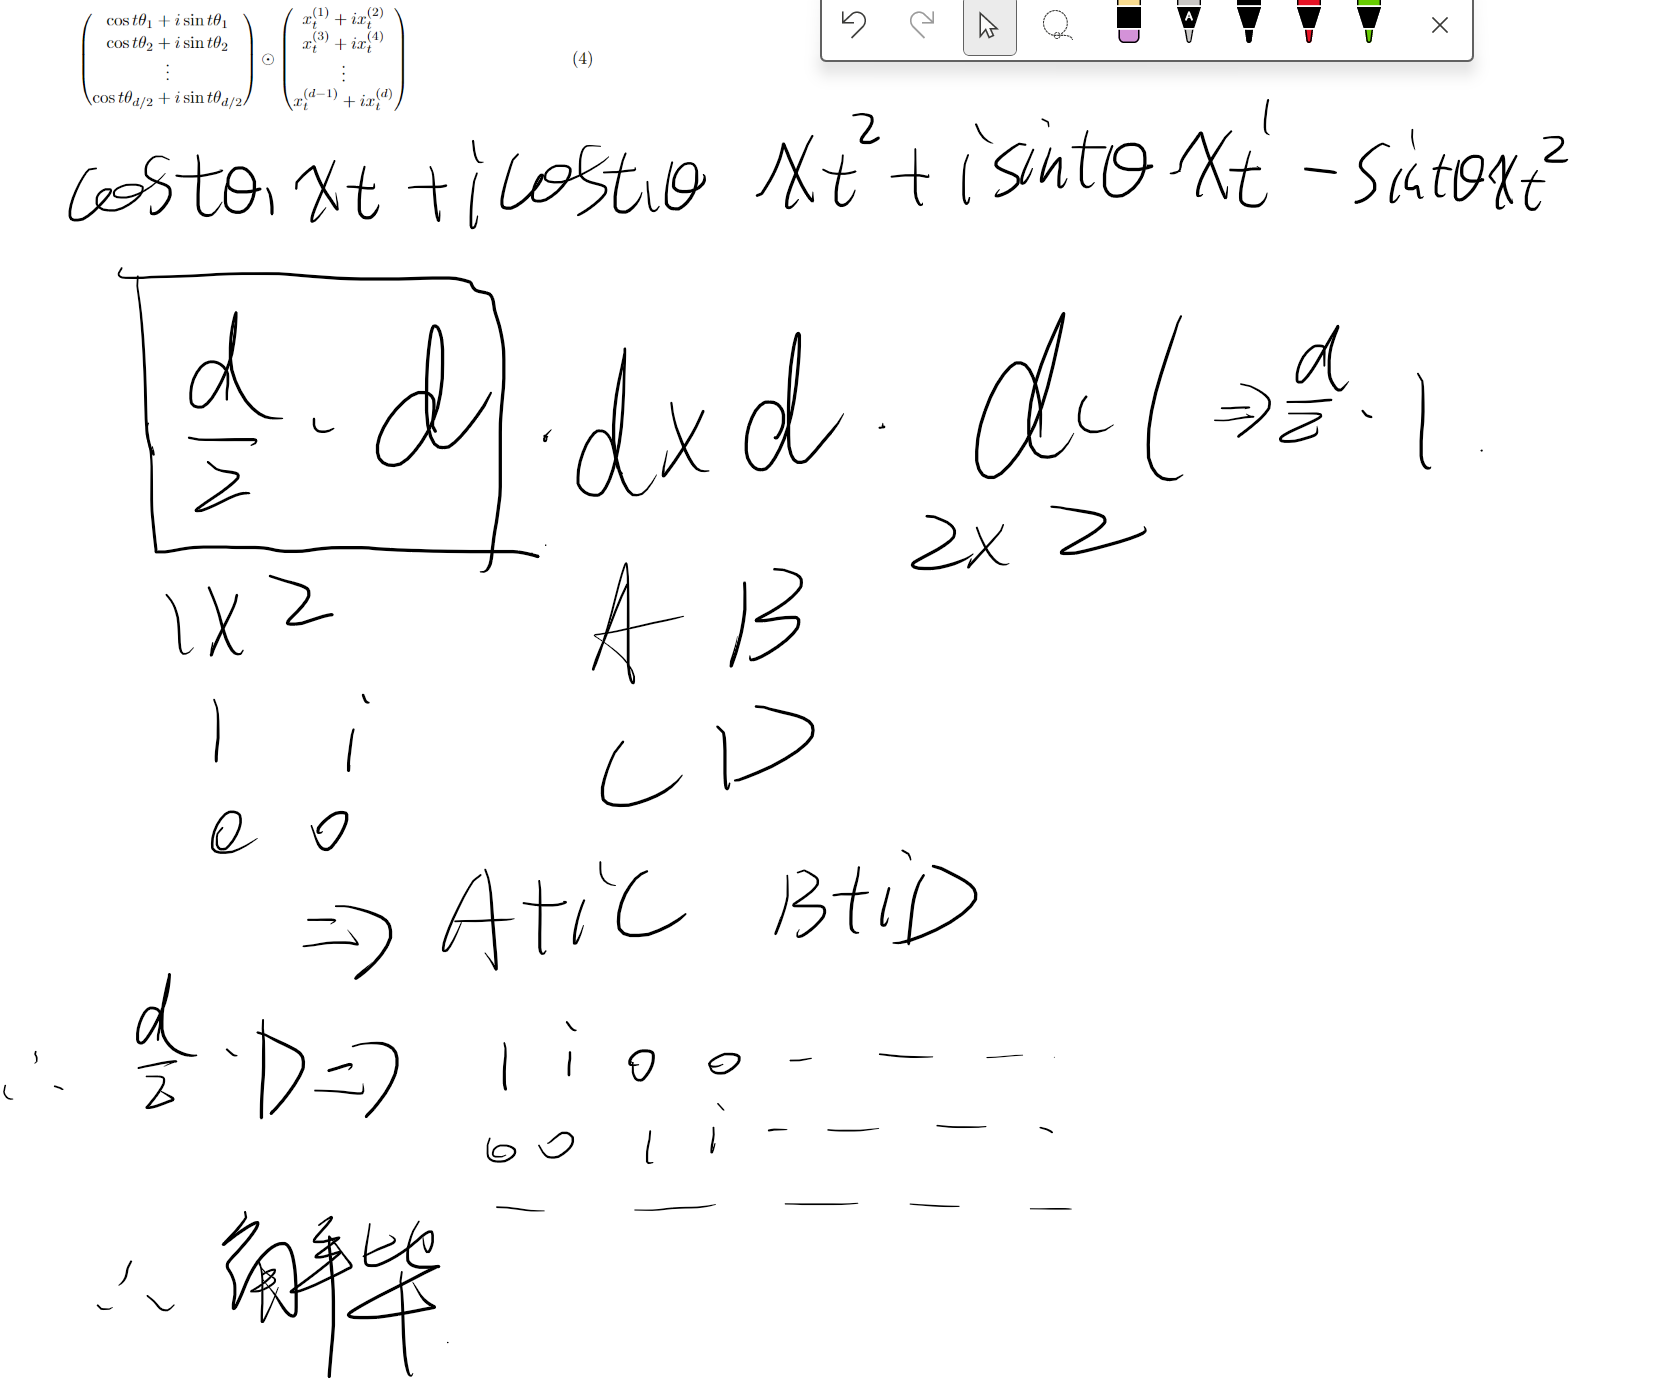 cos tθ₁ + i sin tθ₁
cos tθ₂ + i sin tθ₂
⋮
cos tθ_{d/2} + i sin tθ_{d/2}
⊙
x_t^{(1)} + ix_t^{(2)}
x_t^{(3)} + ix_t^{(4)}
⋮
x_t^{(d−1)} + ix_t^{(d)}
(4)
A
costθ₁ xt + i cost₁θ xt² + i sintθ xt¹ − sintθxt²
d/2 · d · d x d · d ( ⇒ d/2 · 1
2x2
1x2
A B
1 i
C D
0 0
⇒ A+iC B+iD
∴ d/2 · D ⇒ 1 i 0 0 - — —
0 0 1 i - — — -
— — — — —
∴ 解毕